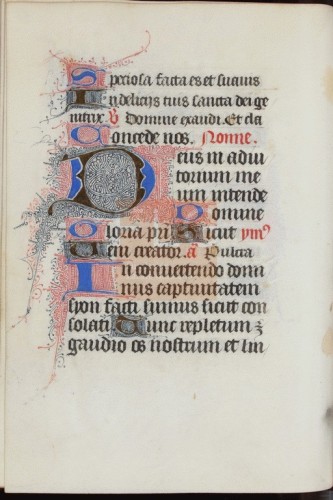 Speciosa facta es et suavis
In deliciis tuis sancta dei ge
nitrix ℣ Domine exaudi. Et cla
Concede nos. None.
Deus in adiu
torium me
um intende
Domine
Gloria pri Sicut ymꝰ
Veni creator. a Pulcra
In convertendo domi
nus captivitatem
syon facti sumus sicut con
solati Tunc repletum ꝫ
gaudio os nostrum et lin